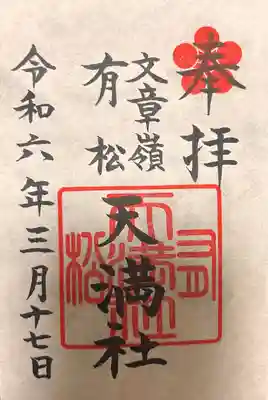 奉拝
文章嶺
有松
天満社
令和六年三月十七日
有松
天満社